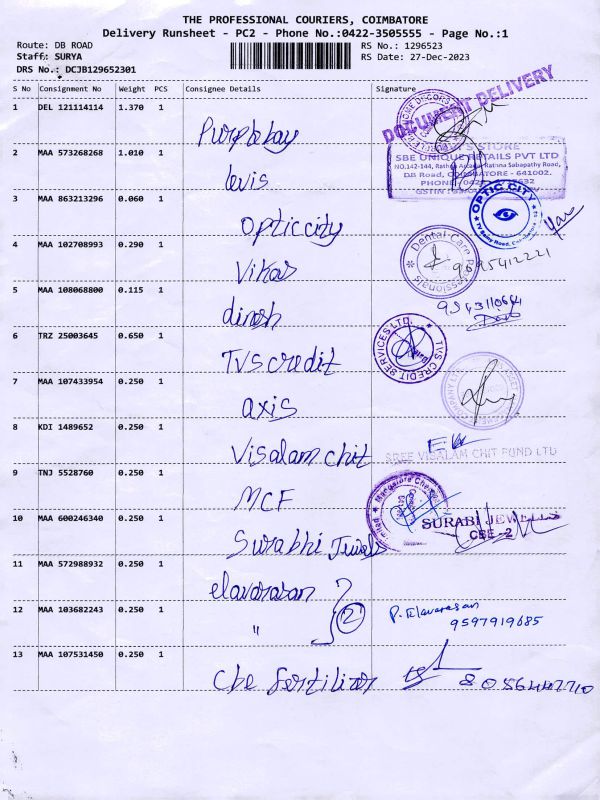 THE PROFESSIONAL COURIERS, COIMBATORE
Delivery Runsheet - PC2 - Phone No.:0422-3505555 - Page No.:1
Route: DB ROAD RS No.: 1296523
Staff: SURYA RS Date: 27-Dec-2023
DRS No.: DCJB129652301
S No Consignment No Weight PCS Consignee Details Signature
1 DEL 121114114 1.370 1 Purplebay DOCUMENT DELIVERY
2 MAA 573268268 1.010 1 levis
STORE
SBE UNIQUE RETAILS PVT LTD
D.B Road, COIMBATORE - 641002.
3 MAA 863213296 0.060 1 Opticcity OPTIC CITY
4 MAA 102708993 0.290 1 Vikas Dental Care Professionals 9095412221
5 MAA 108068800 0.115 1 dinesh
6 TRZ 25003645 0.650 1 TVS credit TVS CREDIT SERVICES LTD.
7 MAA 107433954 0.250 1 axis
8 KDI 1489652 0.250 1 Visalam chit SREE VISALAM CHIT FUND LTD
9 TNJ 5528760 0.250 1 MCF
10 MAA 600246340 0.250 1 Surabhi Jewels SURABI JEWELLS
CBE - 2
11 MAA 572988932 0.250 1 elavarasan
12 MAA 103682243 0.250 1 " 2 P. Elavarasan
9597919685
13 MAA 107531450 0.250 1 Cbe fertilizer 8056447710